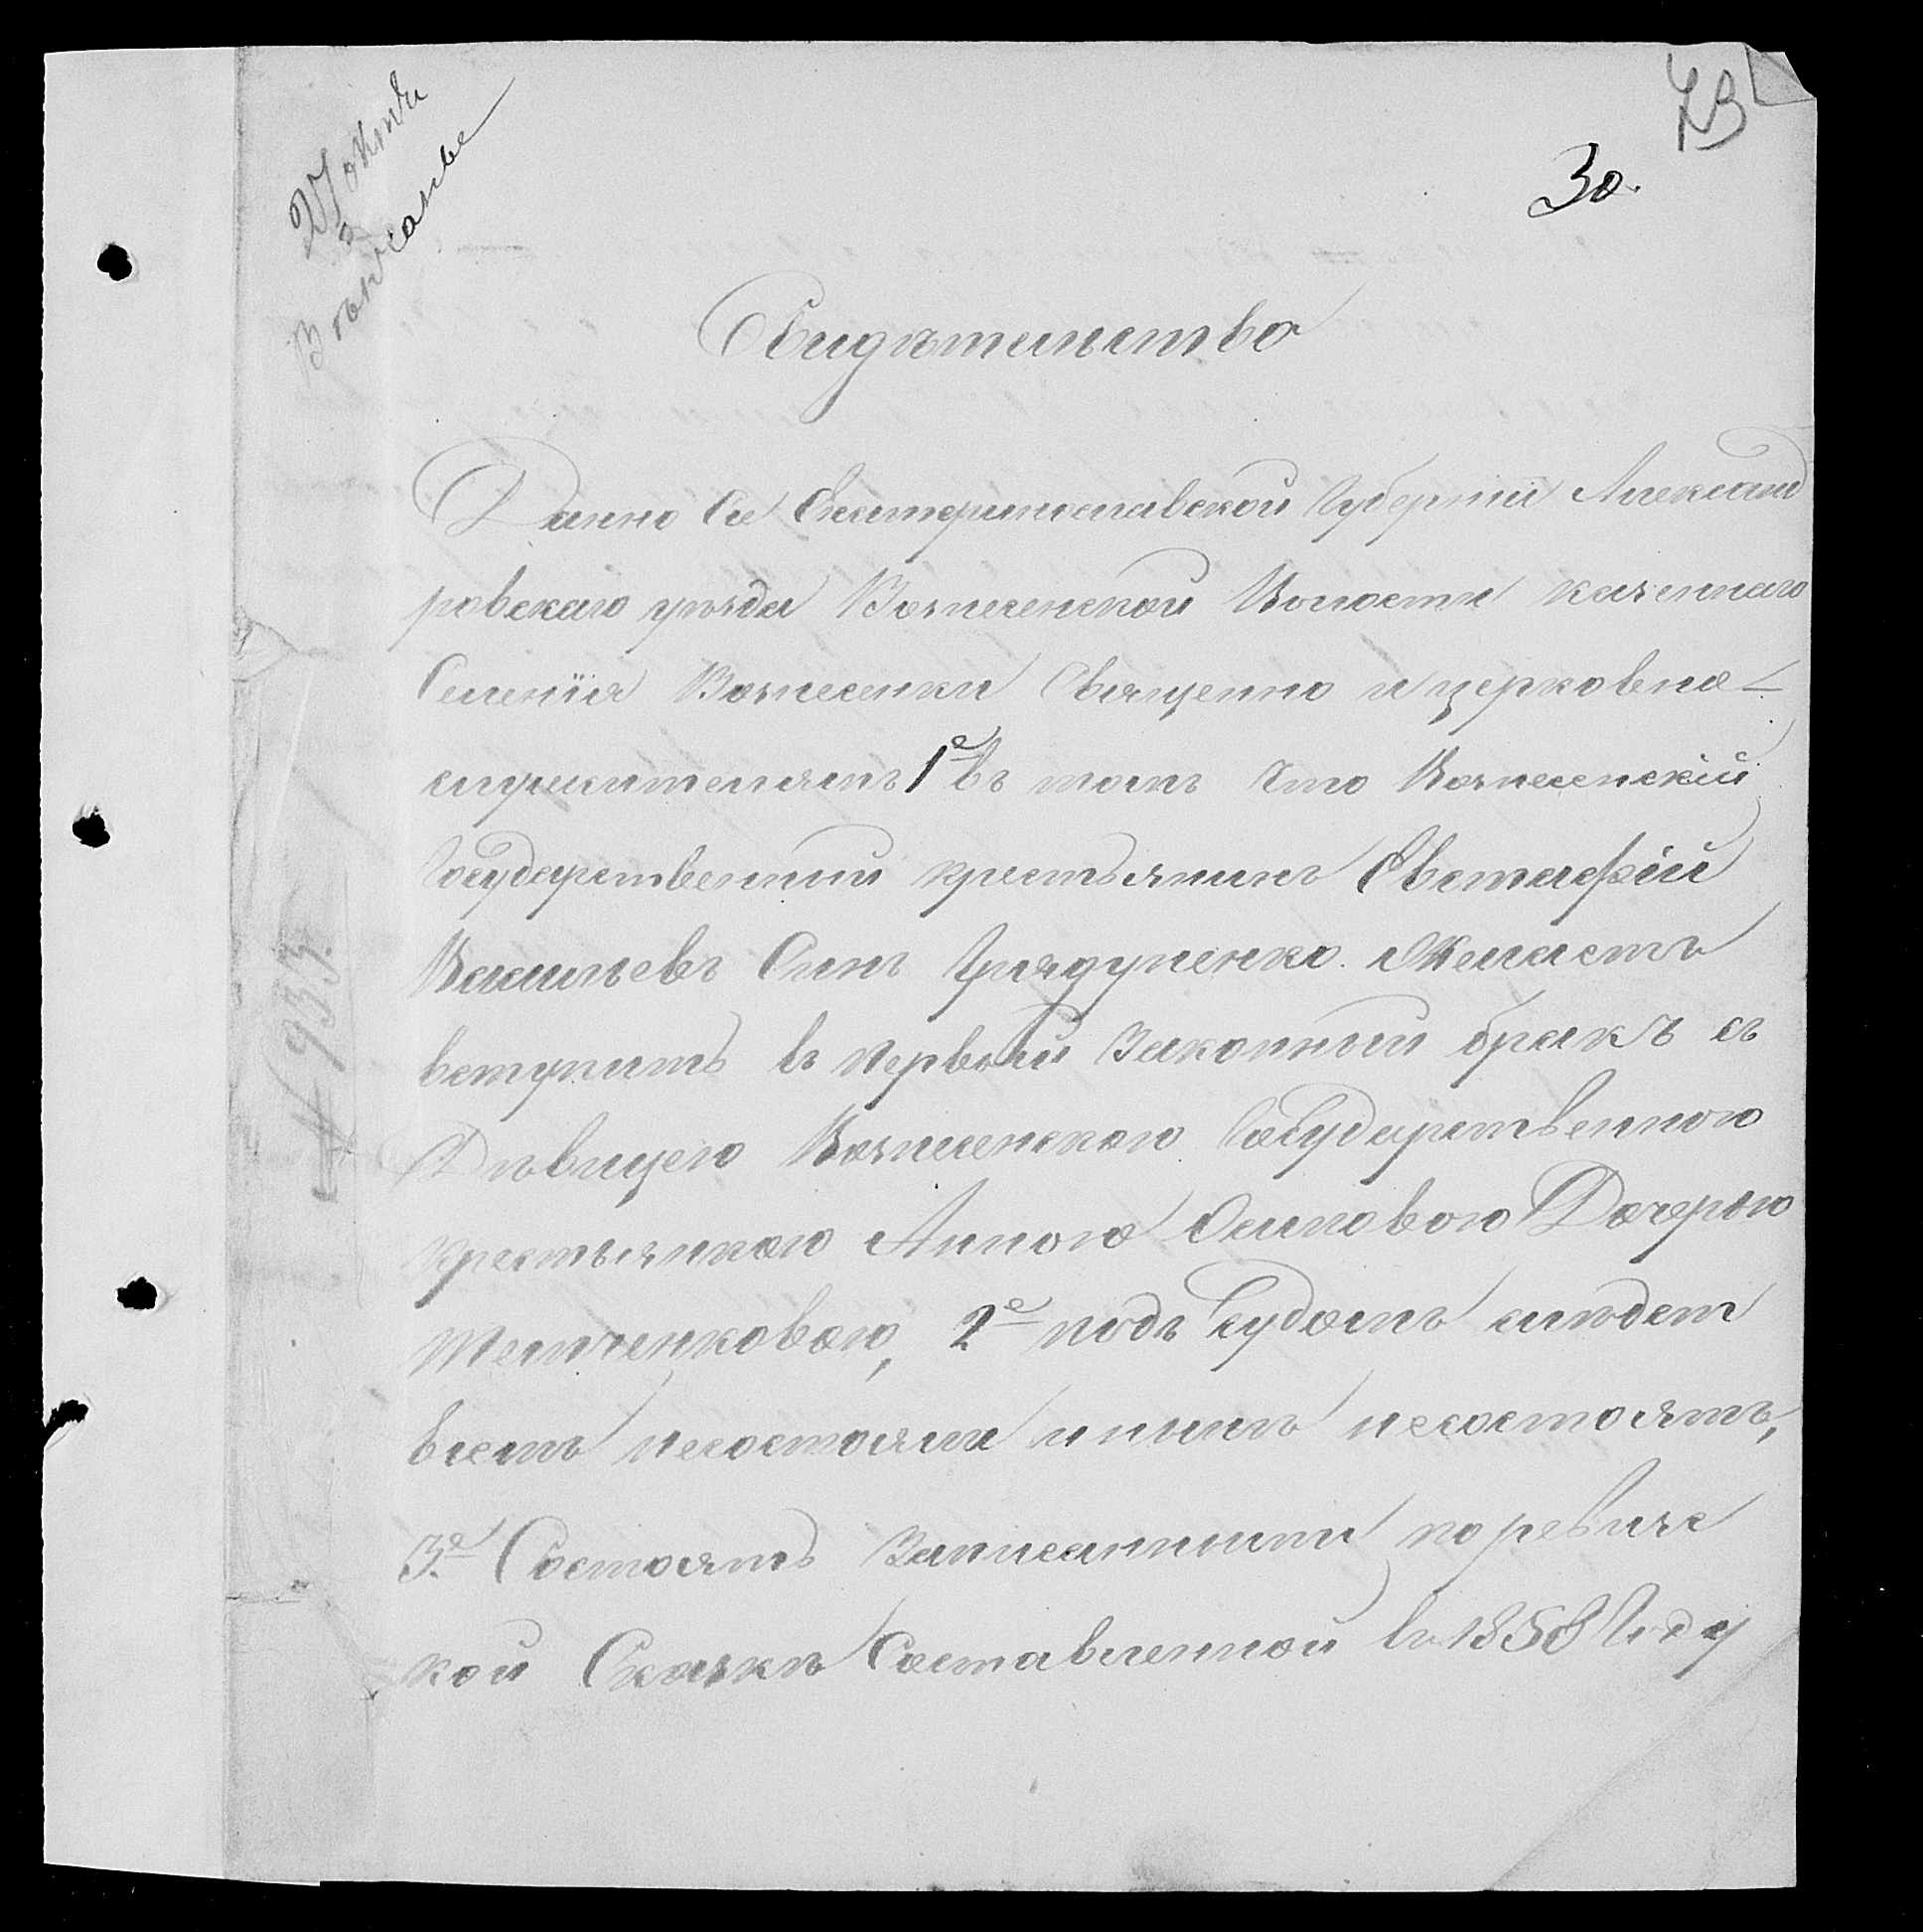 27 октя
Вѣнчанье
73
30.
Свидѣтельство
Данно Сіе Екатеринославской Губерніи Александ
ровскаго уѣзда Вознесенской Волости казеннаго
Селенія Вознесенки Священно и церковно-
служителямъ 1е въ томъ что Вознесенскій
Государственный крестьянинъ Евстафій
Васильевъ Синъ Желаетъ
вступить въ первый Законный бракъ съ
Дѣвицею Вознесенскою Государственною
крестьянкою Анною Осиповою Дочерью
2е подъ Судомъ слѣдст
віемъ несостояли и нынѣ несостоятъ,
3е Состоятъ Записанными поревизс
кой Сказкѣ Составленной въ 1858 Году
№ 933.